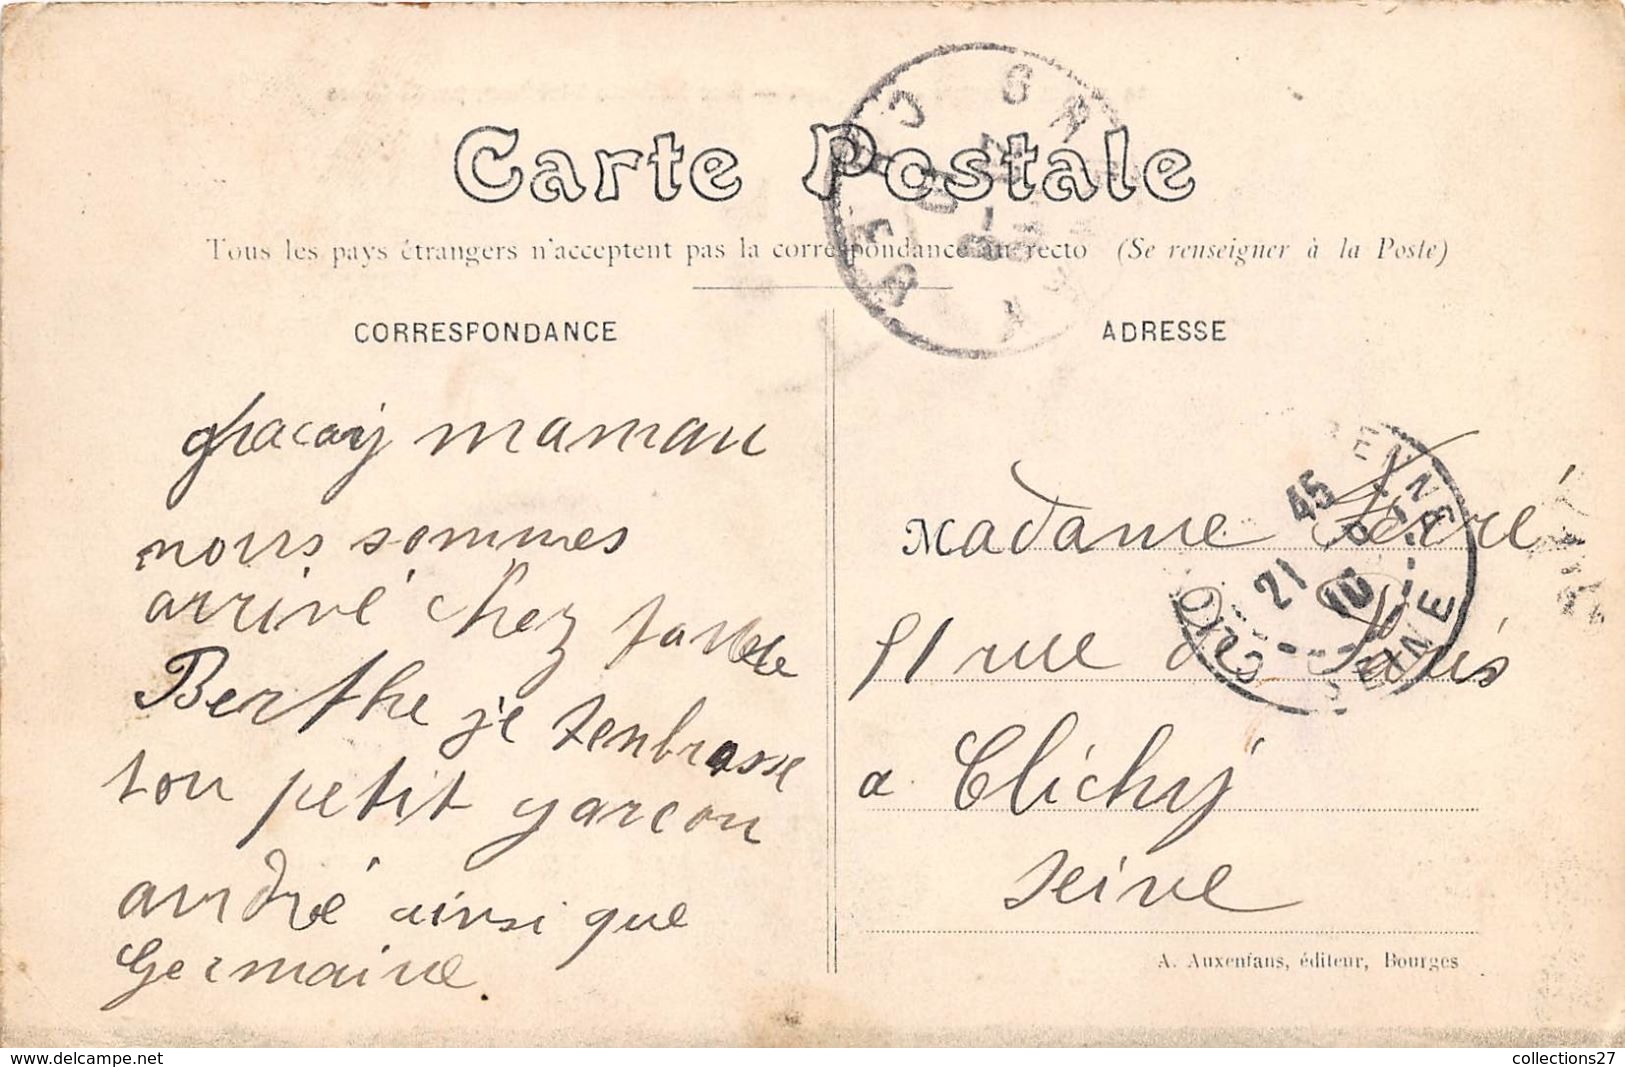 Carte Postale
Tous les pays étrangers n'acceptent pas la correspondance au recto (Se renseigner à la Poste)
CORRESPONDANCE
ADRESSE
graçay maman
nous sommes
arrivé chez tante
Berthe je tenbrasse
ton petit garcon
andré ainsi que
Germaine.
Madame Ferré
51 rue de Paris
a Clichy
seine
A. Auxenfans, éditeur, Bourges
GR
CHER
21 45
10
SEINE
collections27